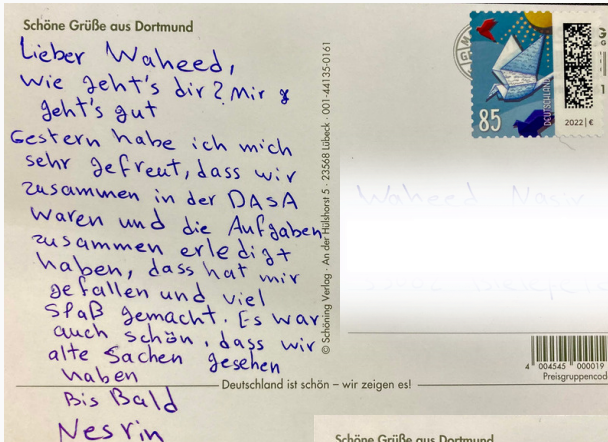 Schöne Grüße aus Dortmund
Lieber Waheed,
wie geht's dir? Mir g
geht's gut
Gestern habe ich mich
sehr gefreut, dass wir
zusammen in der DASA
waren und die Aufgaben
zusammen erledigt
haben, dass hat mir
gefallen und viel
Spaß gemacht. Es war
auch schön, dass wir
alte Sachen gesehen
haben
Bis Bald
Nesrin
© Schöning Verlag · An der Hülshorst 5 · 23568 Lübeck · 001-44135-0161
85
DEUTSCHLAND
2022 | €
Waheed Nasir
4 004545 000019
Preisgruppencode
Deutschland ist schön – wir zeigen es!
Schöne Grüße aus Dortmund